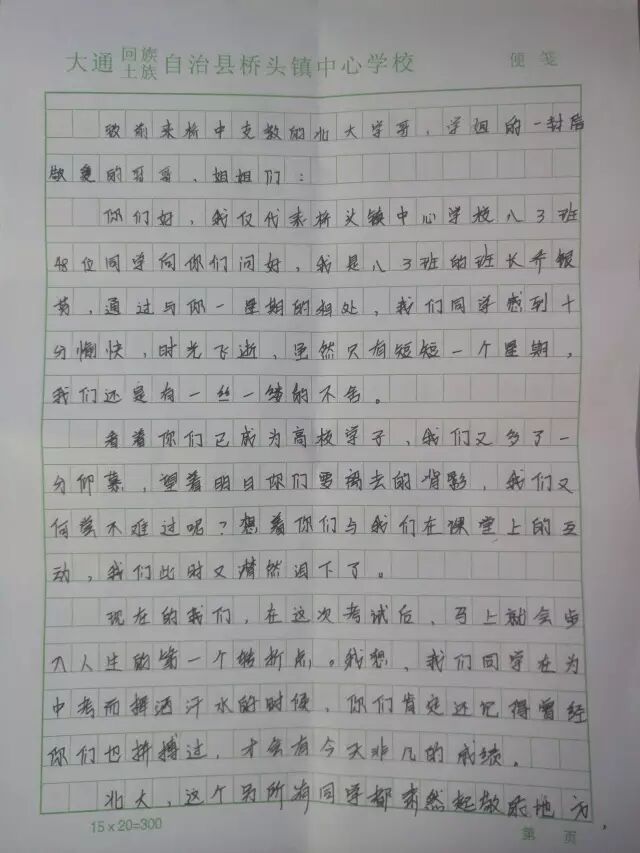 大通回族土族自治县桥头镇中心学校 便笺
致前来桥中支教的北大学哥、学姐的一封信
敬爱的哥哥、姐姐们：
你们好，我仅代表桥头镇中心学校八3班
48位同学向你们问好，我是八3班的班长乔银
，通过与你一星期的相处，我们同学感到十
分愉快，时光飞逝，虽然只有短短一个星期，
我们还是有一丝一缕的不舍。
看着你们已成为高校学子，我们又多了一
分仰慕，望着明日你们要离去的背影，我们又
何尝不难过呢？想着你们与我们在课堂上的互
动，我们此时又潸然泪下了。
现在的我们，在这次考试后，马上就会步
入人生的第一个转折点。我想，我们同学在为
中考而挥洒汗水的时候，你们肯定还记得曾经
你们也拼搏过，才会有今天非凡的成绩。
北大，这个另所有同学都肃然起敬的地方，
15×20=300
第 页